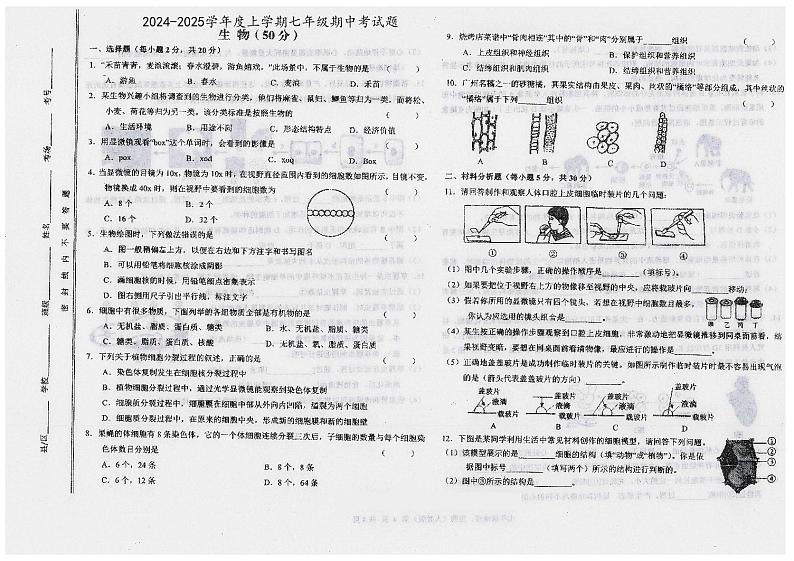 2024-2025学年度上学期七年级期中考试题
生 物（50分）
一、选择题（每小题2分，共20分）
1. “禾苗青青，麦浪滚滚；春水澄碧，游鱼嬉戏。”此场景中，不属于生物的是（ ）
A. 游鱼 B. 春水 C. 麦浪 D. 禾苗
2. 某生物兴趣小组将调查到的生物进行分类，他们将麻雀、鼠妇、鲫鱼等归为一类，而将松、
小麦、荷花等归为另一类。该分类标准是按照生物的（ ）
A. 生活环境 B. 用途不同 C. 形态结构特点 D. 经济价值
3. 用显微镜观看“box”这个单词时，会看到的影像是（ ）
A. pox B. xod C. xoq D. Box
4. 当显微镜的目镜为10x，物镜为10x时，在视野直径范围内看到的细胞数如图所示，目镜不变，
物镜换成40x时，则在视野中要看到的细胞数为（ ）
A. 8个 B. 2个
C. 16个 D. 32个
5. 生物绘图时，下列做法错误的是（ ）
A. 图一般稍偏左上方，以便在右边和下方注字和书写图名
B. 可以用铅笔将细胞核涂成阴影
C. 画细胞核的时候，用铅笔细点密集表示
D. 图右侧用尺子引出平行线，标注文字
6. 细胞中有很多物质，下面列举的各组物质全部是有机物的是（ ）
A. 无机盐、脂质、蛋白质、糖类 B. 水、无机盐、脂质、糖类
C. 糖类、脂质、蛋白质、核酸 D. 无机盐、氧、脂质、蛋白质
7. 下列关于植物细胞分裂过程的叙述，正确的是（ ）
A. 染色体复制发生在细胞核分裂过程中
B. 植物细胞分裂过程中，通过光学显微镜能观察到染色体复制
C. 细胞质分裂过程中，细胞膜在细胞中部从外向内凹陷，缢裂为两个细胞
D. 细胞质分裂过程中，在原来的细胞中央，形成新的细胞膜和新的细胞壁
8. 果蝇的体细胞有8条染色体，它的一个体细胞连续分裂三次后，子细胞的数量与每个细胞染
色体数目分别是（ ）
A. 6个，24条 B. 8个，8条
C. 6个，12条 D. 8个，64条
9. 烧烤店菜谱中“骨肉相连”其中的“骨”和“肉”分别属于 组织（ ）
A. 上皮组织和神经组织 B. 保护组织和营养组织
C. 结缔组织和肌肉组织 D. 结缔组织和营养组织
10. 广州名橘之一的砂糖橘，其果实结构由果皮、果肉、丝状的“橘络”等部分组成，其中丝状的
“橘络”属于下列 组织（ ）
A B C D
二、材料分析题（每小题5分，共30分）
11. 请回答制作和观察人体口腔上皮细胞临时装片的几个问题：
① ② ③ ④
（1）图中几个实验步骤，正确的操作顺序是 （填标号）。
（2）如果要把位于视野右上方的物像移至视野的中央，应将载玻片向 移动；
（3）假若你所用的显微镜只有四个镜头，若想在视野中细胞数目最多，
你认为应选用的镜头组合是 。
甲 乙 丙 丁
（4）某生按正确的操作步骤观察到口腔上皮细胞，非常激动地把显微镜推移到同桌面前看，结
果视野变暗，要想在同桌面前看清物像，最应进行的操作是 。
（5）正确地盖盖玻片是成功制作临时装片的关键。如图所示制作临时装片时最不容易出现气泡
的是（箭头代表盖盖玻片的方向） 。
盖玻片 盖玻片 盖玻片 盖玻片
液滴 液滴 液滴 液滴
载玻片 载玻片 载玻片 载玻片
A B C D
12. 下图是某同学利用生活中常见材料创作的细胞模型，请回答下列问题。
（1）该模型展示的是 细胞的结构（填“动物”或“植物”）。你是依
据图中标号 （填写两个）所示的结构进行判断的。
（2）图中③所示的结构是 。
① ② ③ ④
县/区 学校 班级 姓名 考场 考号
密 封 线 内 不 要 答 题